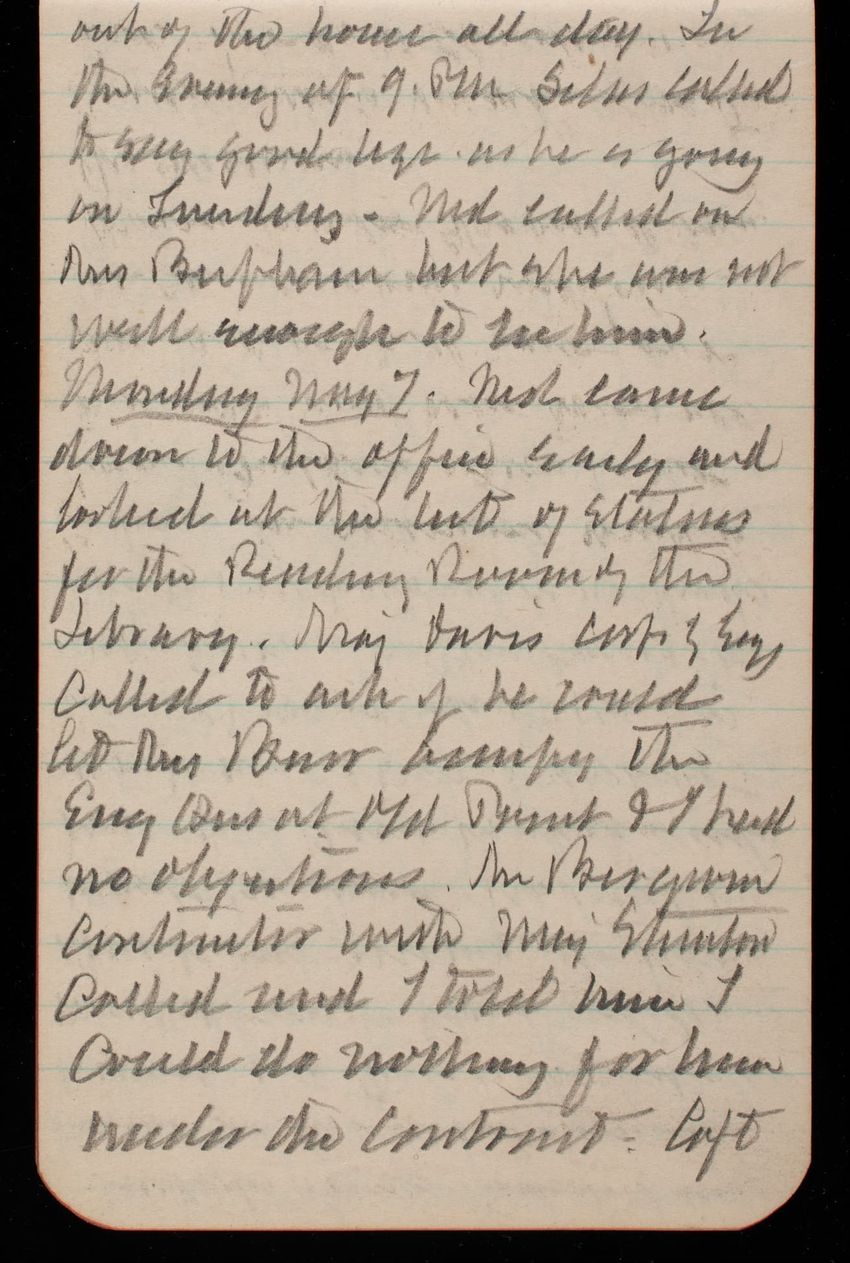 out of the house all day. In
the Evening at 9. PM Silas called
to say good bye as he is going
on Tuesday - Ned called on
Mrs but she was not
well enough to see him.
Monday May 7. Ned came
down to the office early and
looked at the list of Statues
for the Reading Room of the
Library. Maj Davis Corps of Engs
Called to ask if he could
let Mrs Burr occupy the
Eng Qrs at Old Point & I had
no objections. Mr Bergman
Contractor with Maj Stanton
Called and I told him I
Could do nothing for him
under the Contract - Capt